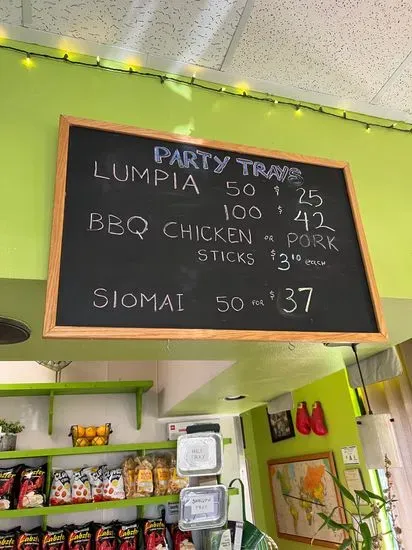 PARTY TRAYS
LUMPIA 50 $ 25
100 $ 42
BBQ CHICKEN OR PORK
STICKS $3¹⁰ each
SIOMAI 50 FOR $37